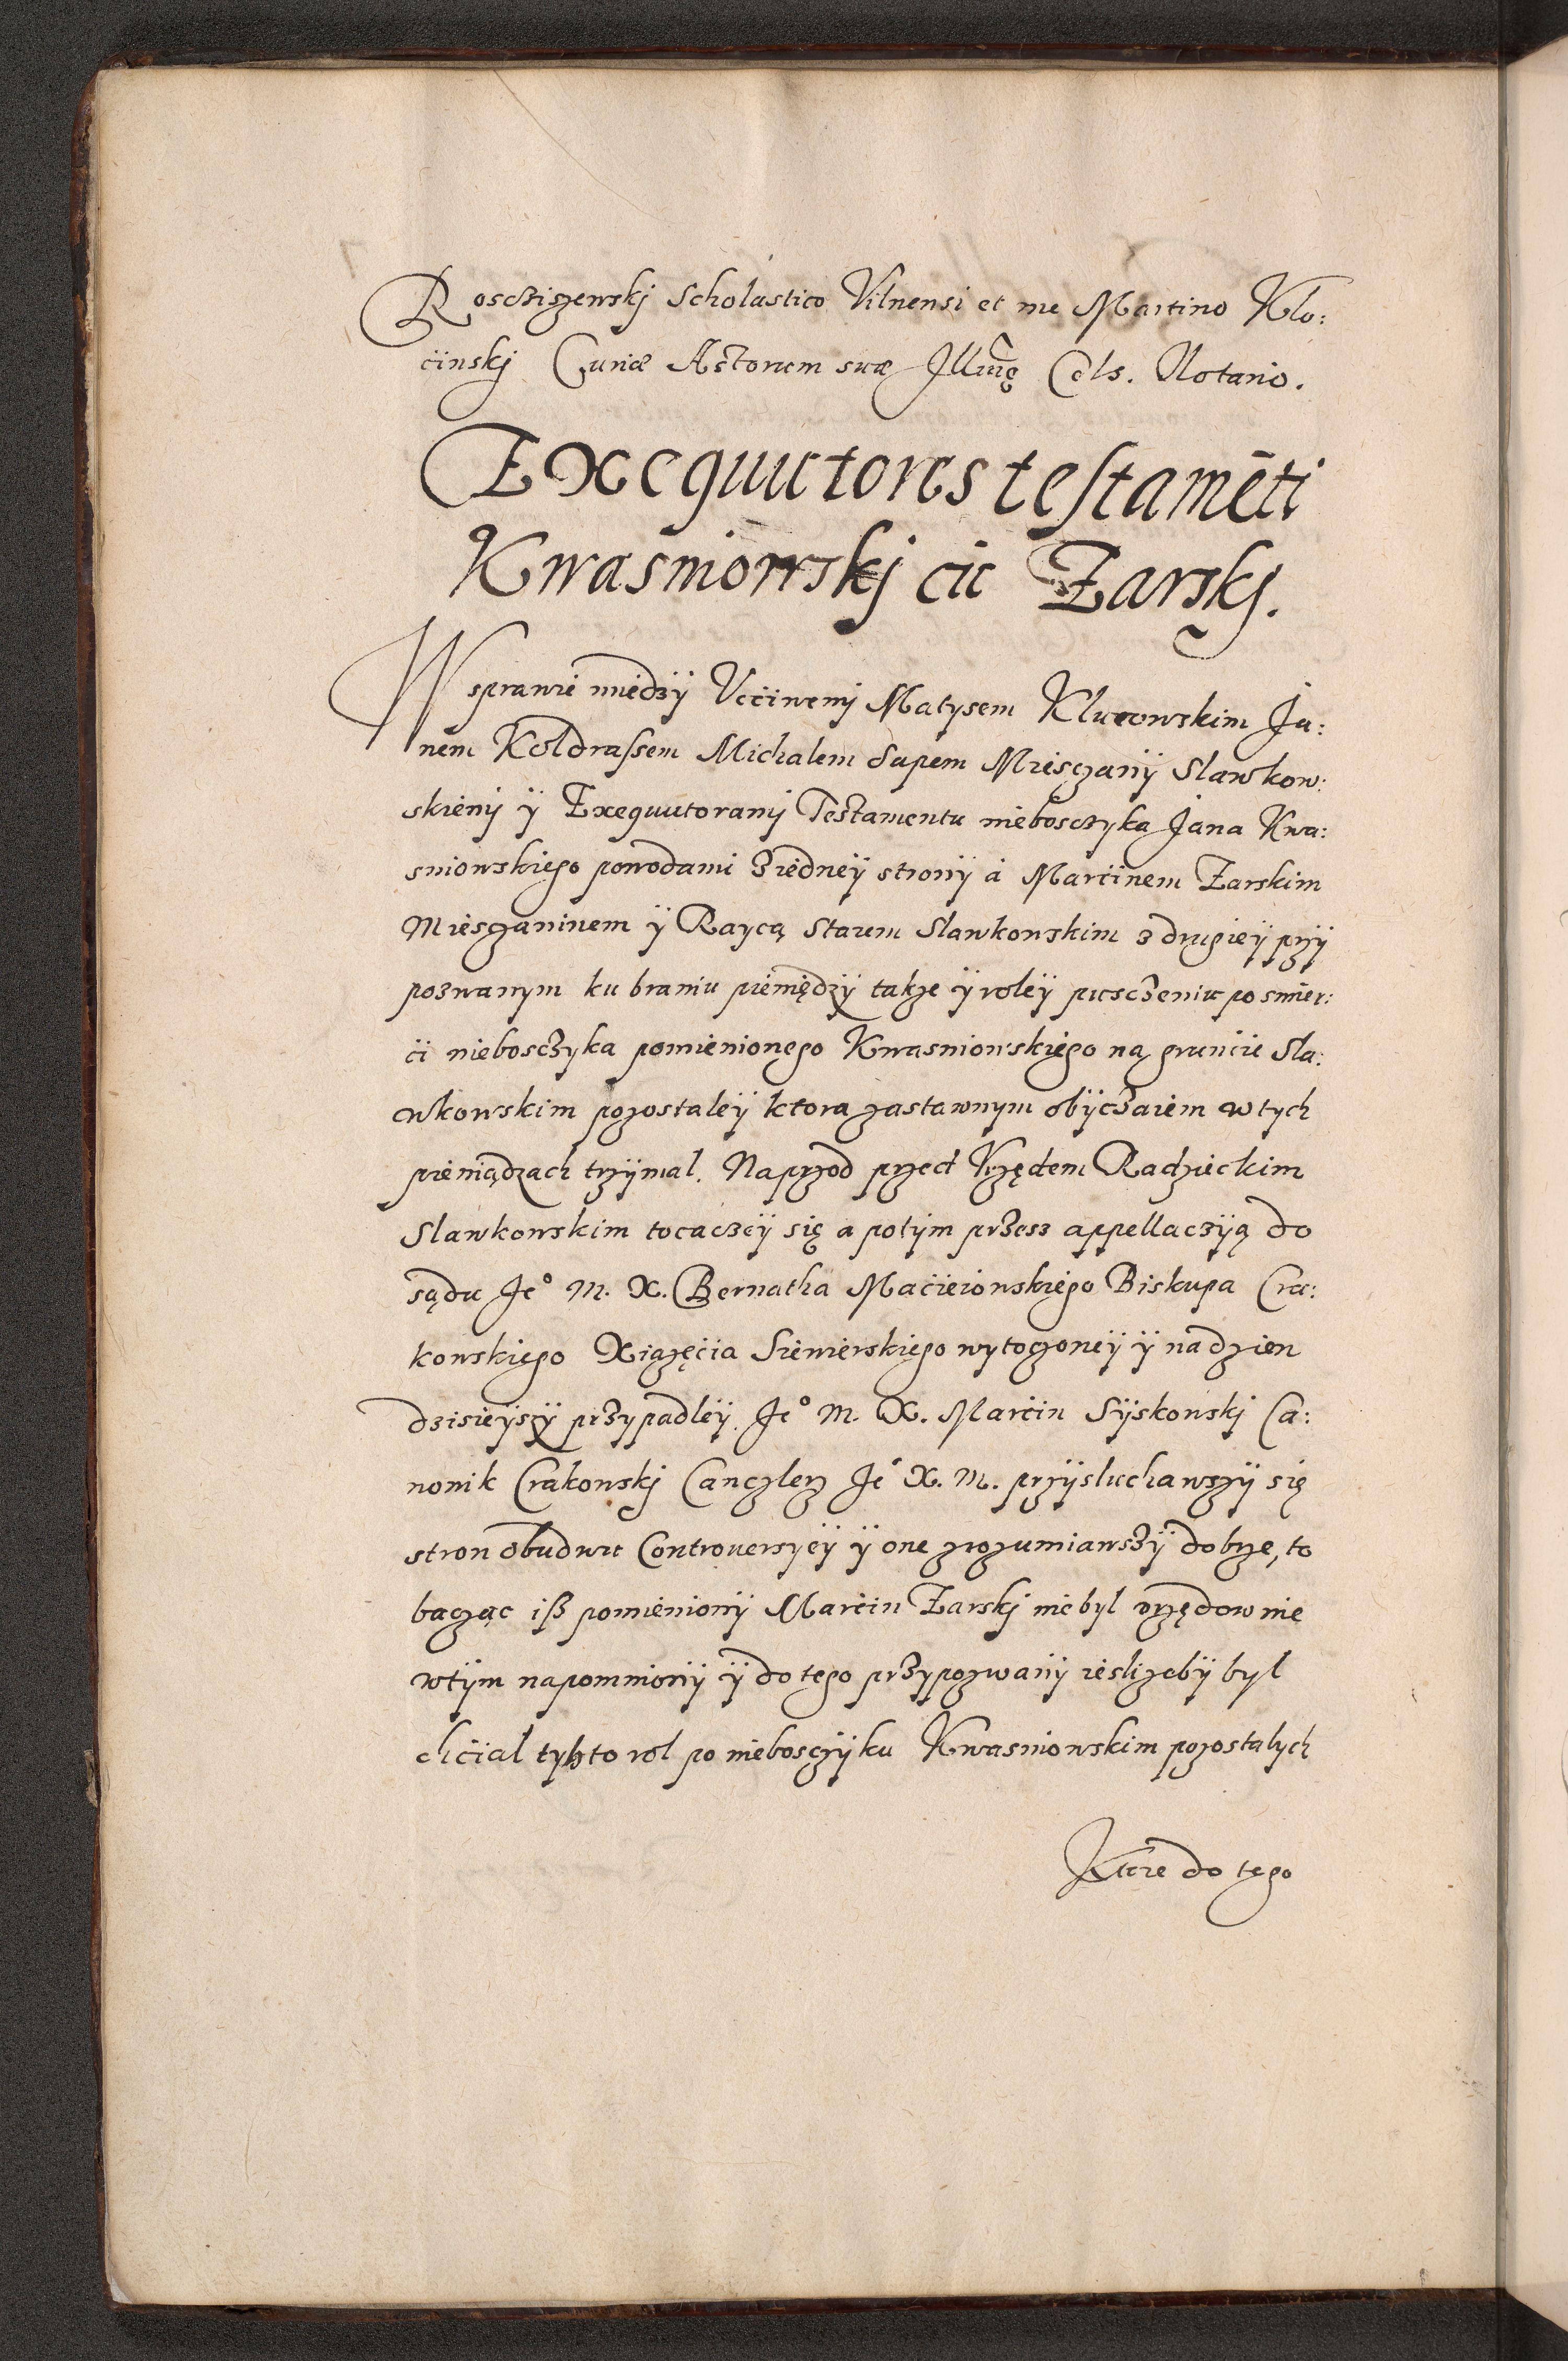 Roscziszewskj Scholastico Vilnensi et me Martino Klo:
cinskj Curiæ Actorum suæ Illmę Cels. Notario.
Exequutores testamēti
Kwasniowskj cū Żarskj.
W sprawie miedzÿ Vcciwemj Matysem Klucowskim Ja:
nem Koldrassem Michalem Supem Miesczanÿ Slawkow:
skiemj ÿ Exequutoramj Testamentu niebosczyka Jana Kwa:
sniowskiego powodami ziedneÿ stronÿ á Marcinem Żarskim
Miesczaninem ÿ Raycą starem Slawkowskim z drugieÿ przÿ
poznanym ku braniu pieniędzÿ takze ÿ roleÿ pusczeniu po smier:
ci niebosczyka pomienionego Kwasniowskiego ną gruncie Sla:
wkowskim pozostaleÿ ktora zastawnym obÿczaiem w tych
pieniądzach trzÿmal. Naprzod przed Vrzędem Radzieckim
Slawkowskim tocaczeÿ się a potÿm przesz appellaczÿą do
sądu Je° M. X. Bernatha Macieiowskiego Biskupa Cra:
kowskiego Xiązęcia Siewierskiego wytoczoneÿ ÿ na dzien
dzisieÿszÿ przypadleÿ. Je° M. X. Marcin Sÿskowskj Ca:
nonik Crakowskj Canczlerz Je° X. M. przÿsluchawszÿ się
stron obudwu Controuersyeÿ ÿ one zrozumiawszÿ dobrze, to
bacząc iß pomienionÿ Marcin Żarskj nie byl vrzędownie
wtÿm napomnionÿ ÿ do tego przypozwanÿ ieslizebÿ byl
chcial tychto rol po niebosczÿku Kwasniowskim pozostalych
Ktore do tego